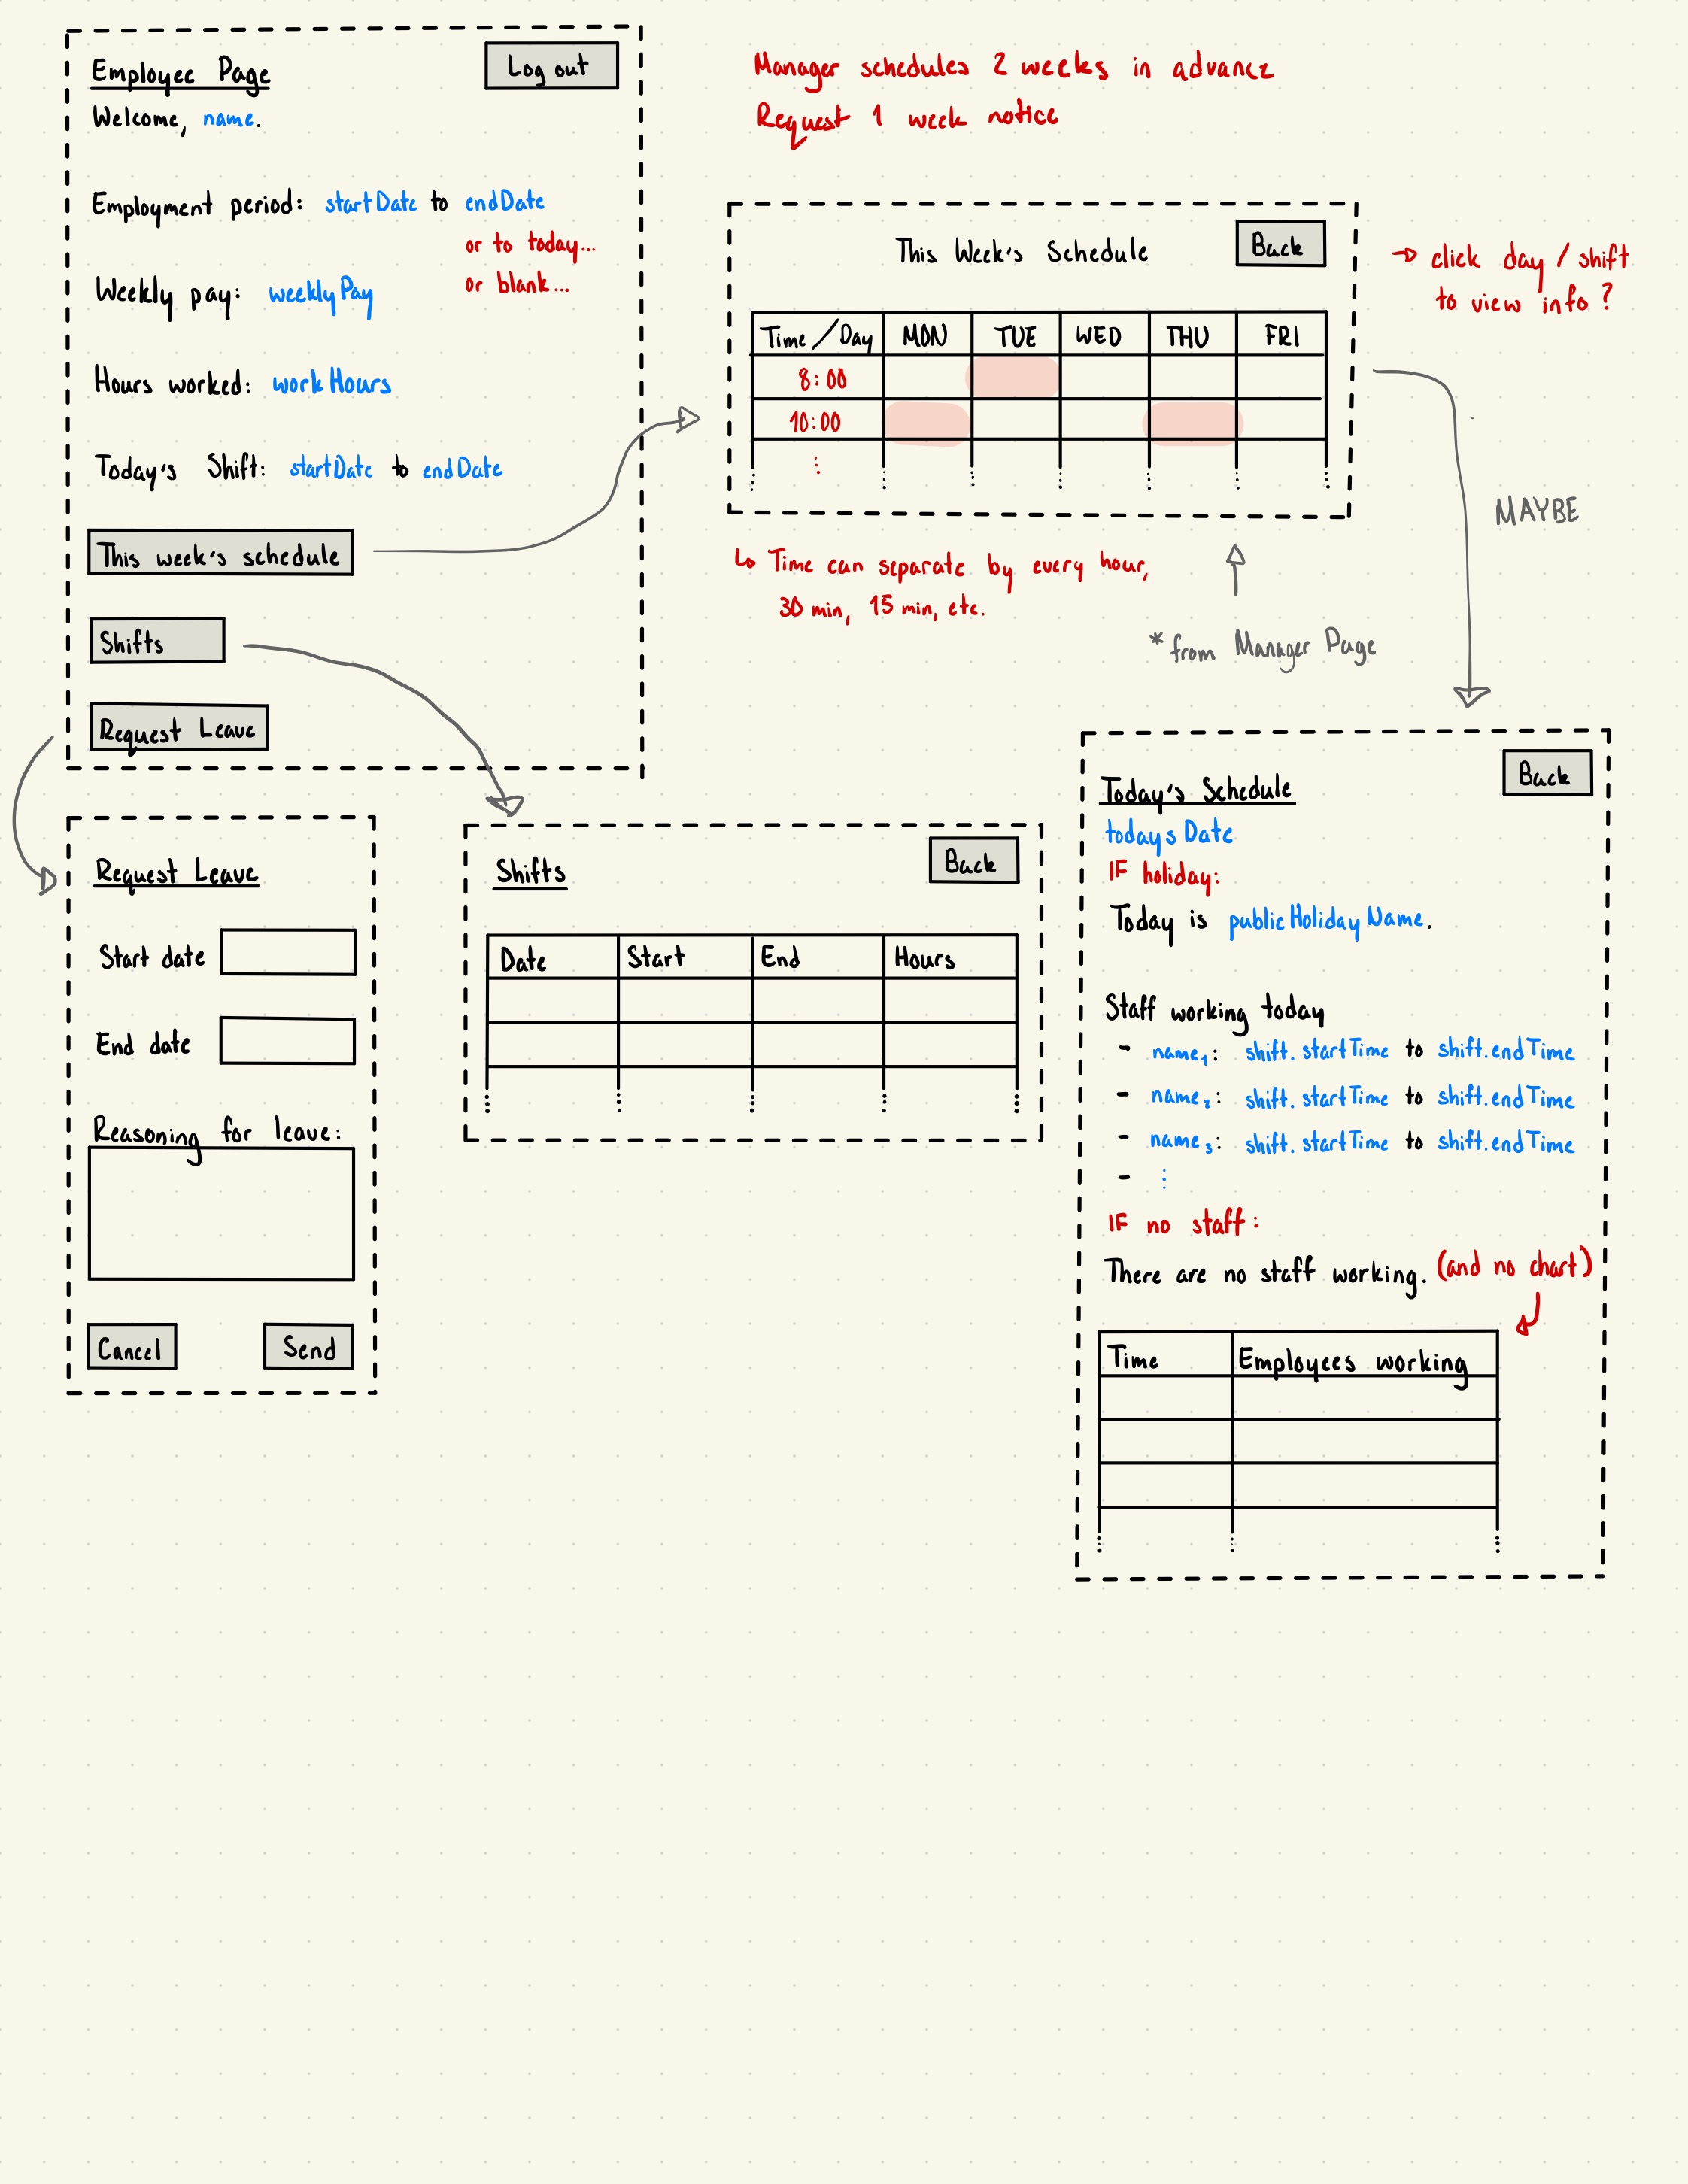 Employee Page
Log out
Welcome, name.
Employment period: startDate to endDate
or to today...
or blank...
Weekly pay: weeklyPay
Hours worked: workHours
Today's Shift: startDate to endDate
This week's schedule
Shifts
Request Leave
Manager schedules 2 weeks in advance
Request 1 week notice
This Week's Schedule
Back
Time/Day MON TUE WED THU FRI
8:00
10:00
⋮
→ click day / shift
to view info?
↳ Time can separate by every hour,
30 min, 15 min, etc.
*from Manager Page
MAYBE
Request Leave
Start date
End date
Reasoning for leave:
Cancel Send
Shifts
Back
Date Start End Hours
Today's Schedule
Back
todaysDate
IF holiday:
Today is publicHolidayName.
Staff working today
- name₁: shift.startTime to shift.endTime
- name₂: shift.startTime to shift.endTime
- name₃: shift.startTime to shift.endTime
- ⋮
IF no staff:
There are no staff working. (and no chart)
Time Employees working